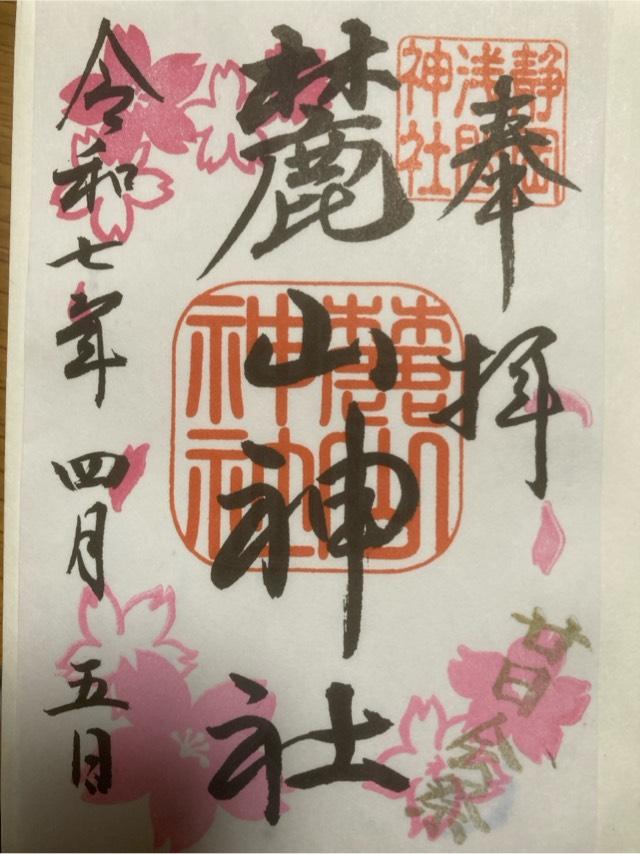 静岡
浅間
神社
奉拝
廿日会祭
麓山神社
麓山
神社
令和七年 四月 五日